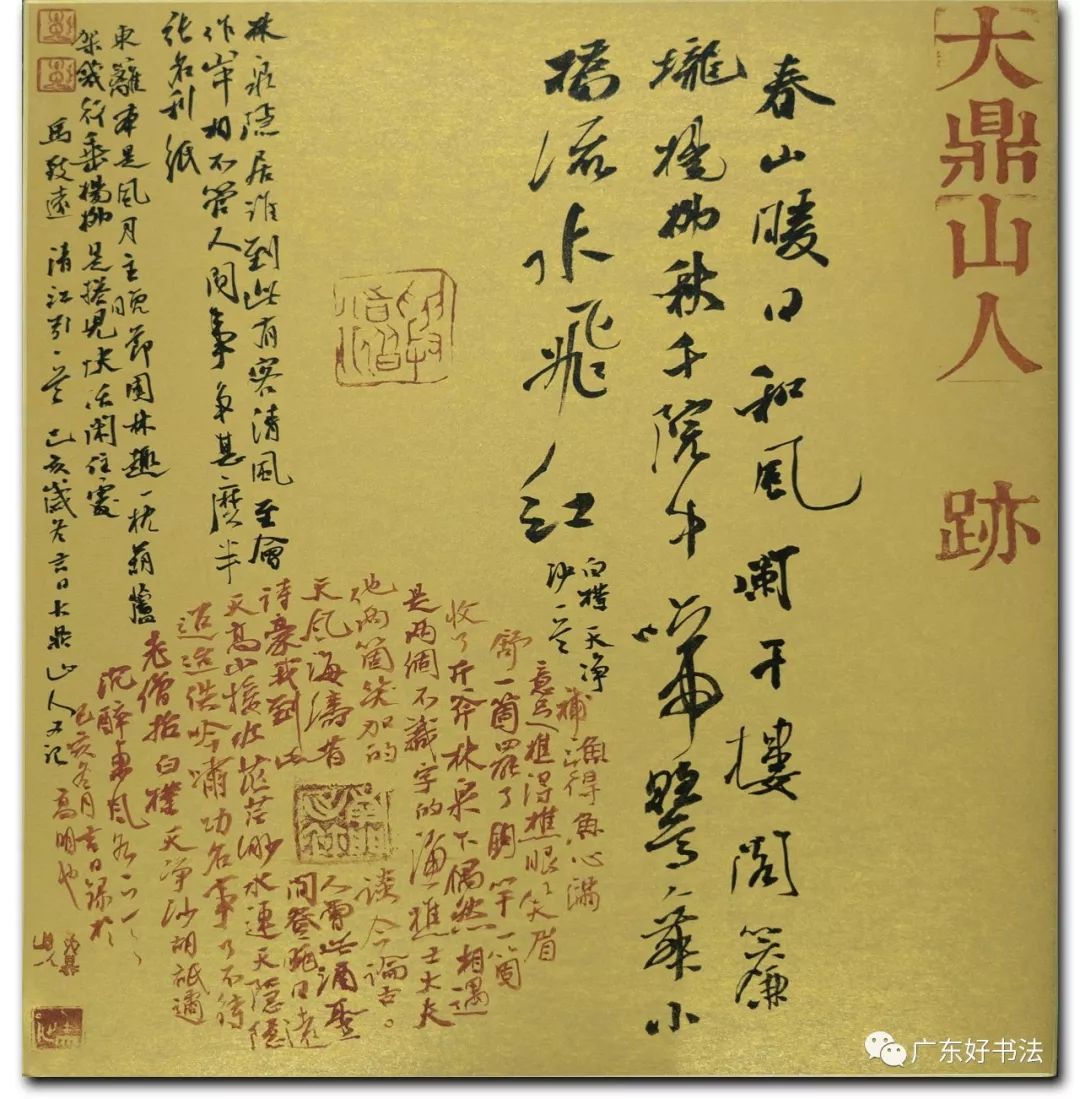 大鼎山人 跡
春山暖日和風闌干樓閣簾
櫳楊柳秋千院中啼鶯舞小
橋流水飛紅
白樸天净
沙一首
林泉隱居誰到此有客清風至會
作山中相不管人間事爭甚麼半
張名利紙
東籬本是風月主晚節園林趣一枕葫蘆
架幾行垂楊柳是搭兒快活閑住處
馬致遠 清江引二首 己亥歲冬吉日大鼎山人又記
補 漁得魚心滿
意足樵得樵眼笑眉
舒一箇罷了釣竿一箇
收了斤斧林泉下偶然相遇
是兩個不識字的漁樵士大夫
他兩箇笑加的談今論古。
天風海濤昔人曾此酒聖
詩豪我到此閒登眺日遠
天高山接水茫茫渺水連天隱隱
迢迢供吟嘯功名事了不待
老僧招白樸天净沙胡祗遹
沉醉東風各一
己亥冬月吉日錄於
高明也
广东好书法